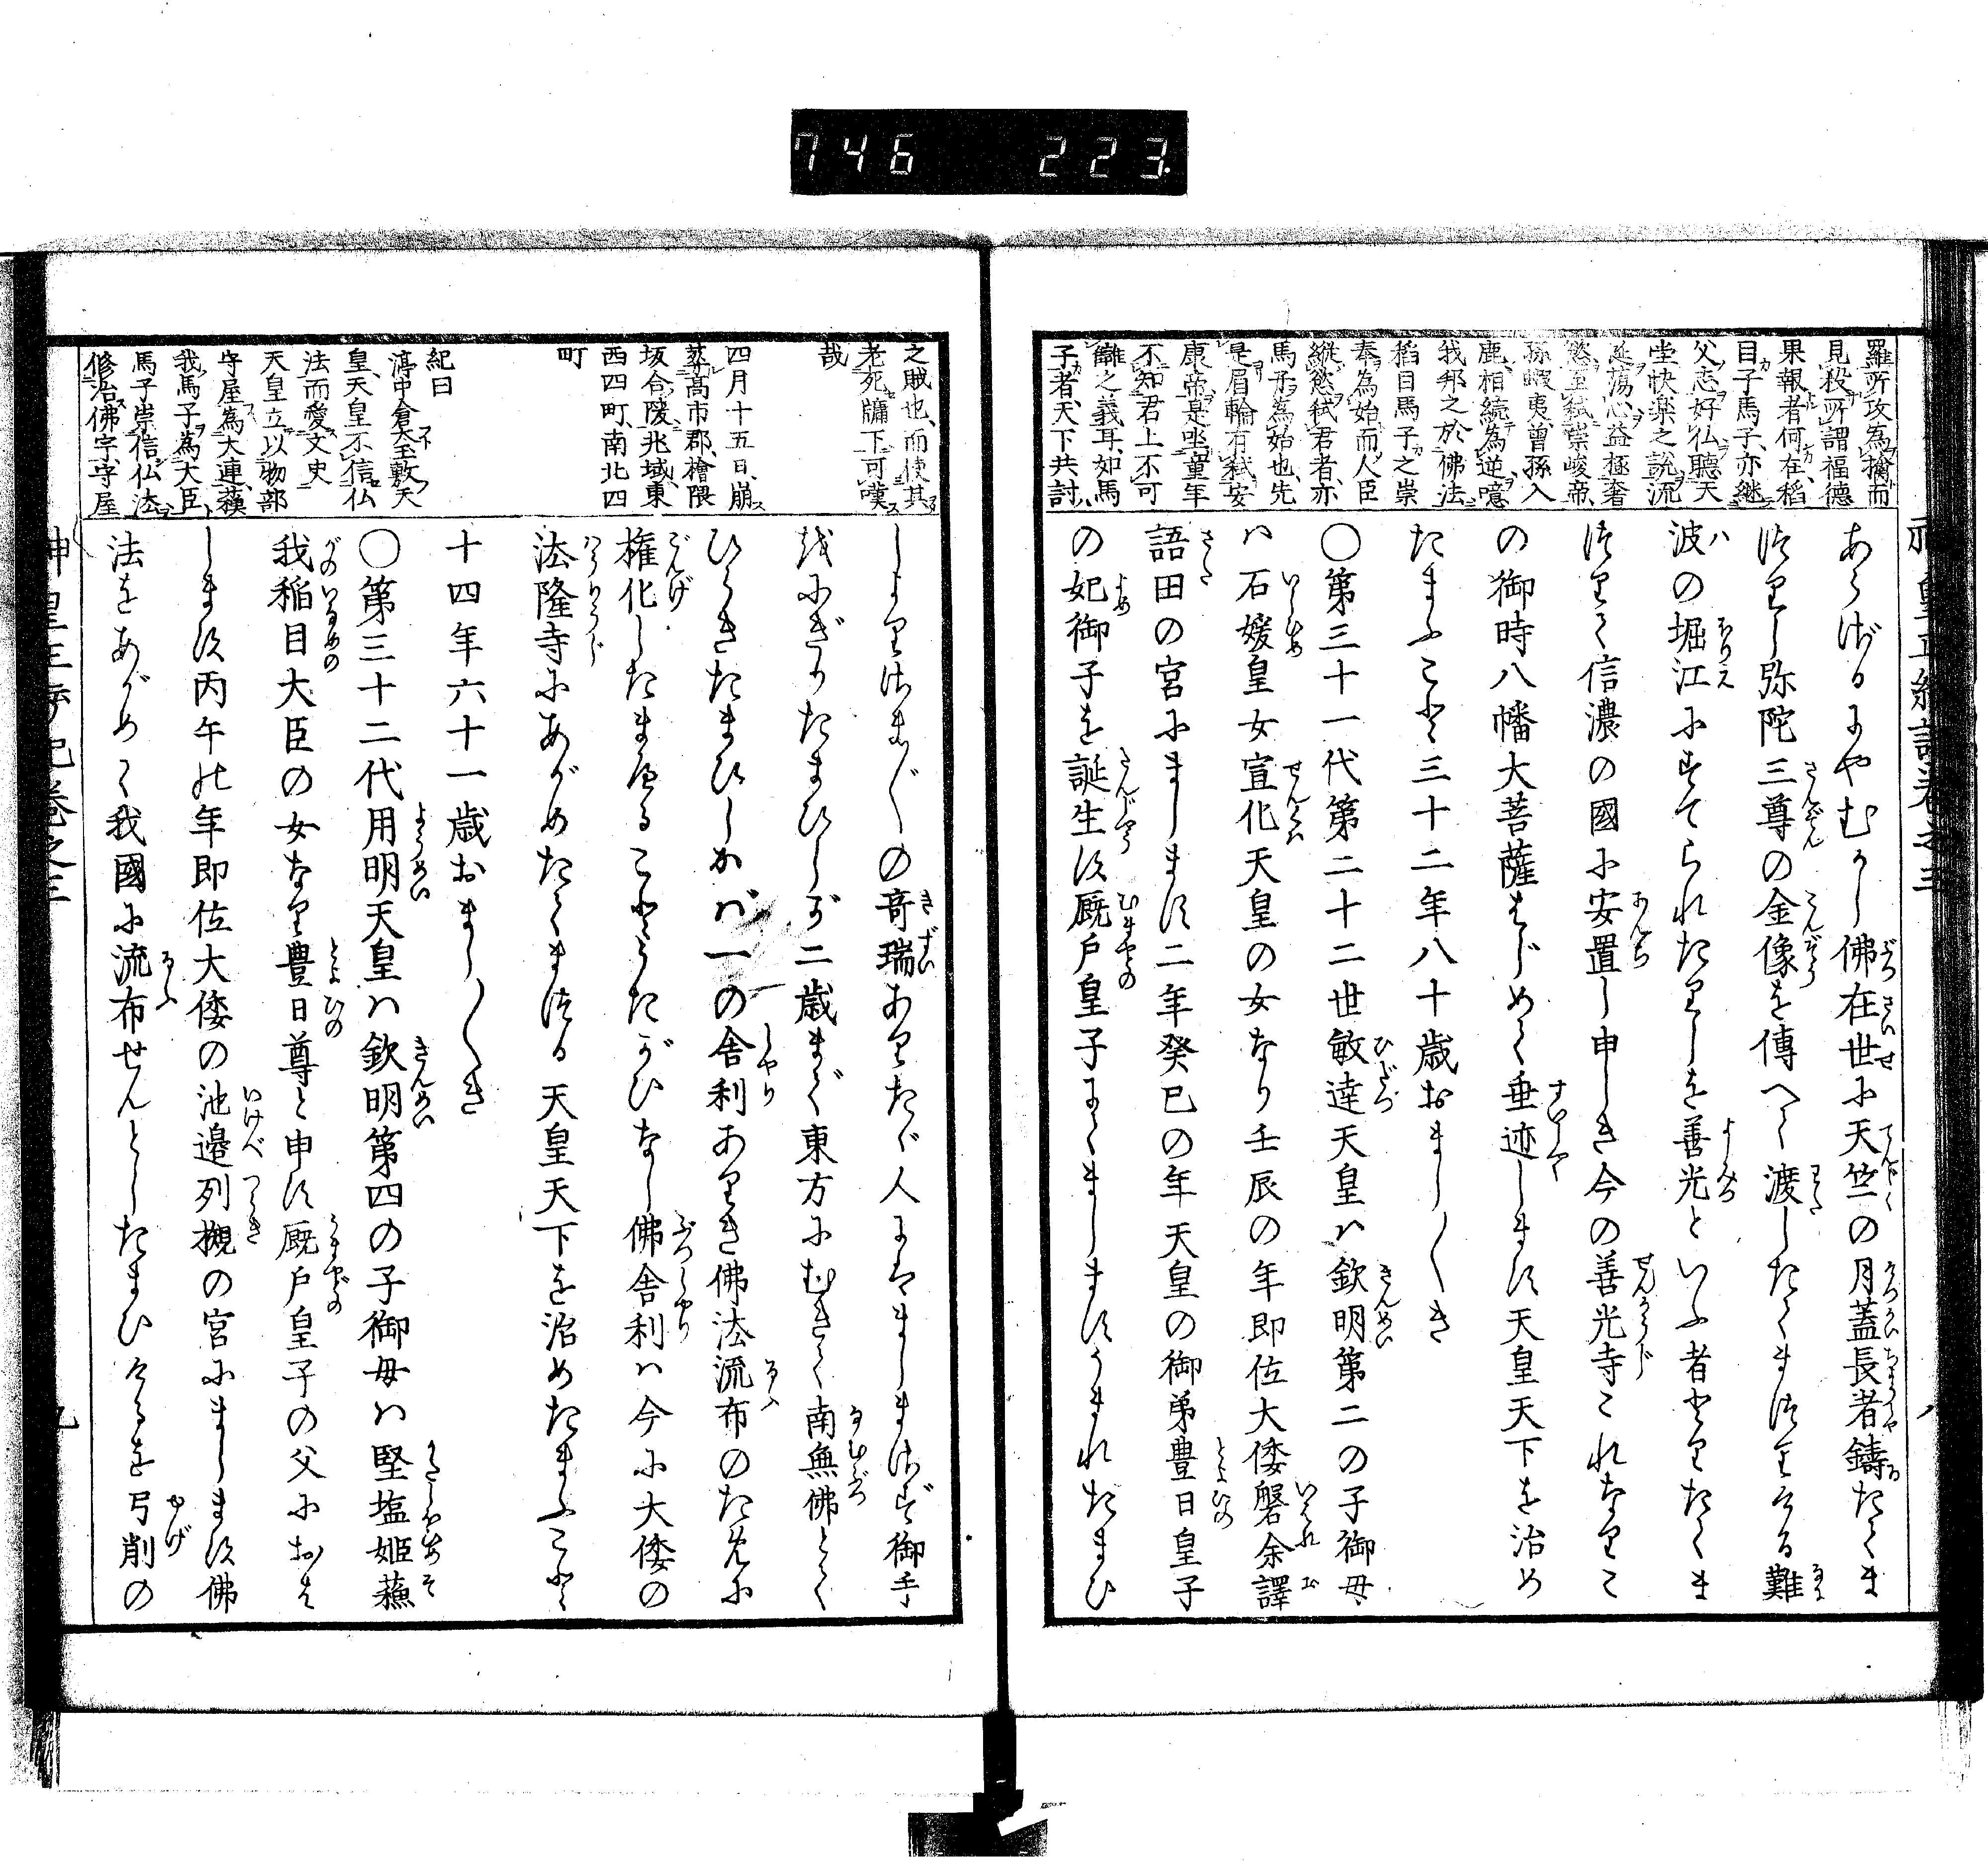 746 223
羅所攻為擒而
見殺所謂福德
果報者何在稻
目子馬子亦継
父志好仏聴天
堂快楽之説流
延蕩心益極奢
慾至弑崇峻帝
孫蝦夷曽孫入
鹿相続為逆噫
我邦之於佛法
稻目馬子之崇
奉為始而人臣
縦慾弑君者亦
馬子為始也先
是眉輪有弑安
康帝是㘴童年
不知君上不可
讎之義耳如馬
子者天下共討
あらざるにやむかし佛在世に天竺の月蓋長者鋳たてま
つりし弥陀三尊の金像を傳へて渡したてまつりける難
波の堀江にすてられたりしを善光といふ者とりたてま
つりて信濃の國に安置し申しき今の善光寺これなりこ
の御時八幡大菩薩はじめて垂迹します天皇天下を治め
たまふこと三十二年八十歳おまし〳〵き
〇第三十一代第二十二世敏達天皇ハ欽明第二の子御母
ハ石媛皇女宣化天皇の女なり壬辰の年即位大倭磐余譯
語田の宮にまします二年癸巳の年天皇の御弟豊日皇子
の妃御子を誕生す厩戸皇子にてまします うまれたまひ
之賊也而使其
老死牖下可嘆
哉
四月十五日崩
葬高市郡檜隈
坂合陵兆域東
西四町南北四
町
紀曰
渟中倉太玉敷天
皇天皇不信仏
法而愛文史
天皇立以物部
守屋為大連蘓
我馬子為大臣
馬子崇信仏法
修治佛宇守屋
しよりさま〴〵の奇瑞ありたゞ人にてましまさず御手
をにぎりたまひしが二歳まで東方にむきて南無佛とて
ひらきたまひしかバ一の舎利ありき佛法流布のために
権化したまへることうたがひなし佛舎利ハ今に大倭の
法隆寺にあがめたてまつる天皇天下を治めたまふこと
十四年六十一歳おまし〳〵き
〇第三十二代用明天皇ハ欽明第四の子御母ハ堅塩姫蘓
我稲目大臣の女なり豊日尊と申す厩戸皇子の父におは
します丙午の年即位大倭の池邉列槻の宮にまします佛
法をあがめて我國に流布せんとしたまひけるを弓削の
神皇正統記巻之三
九